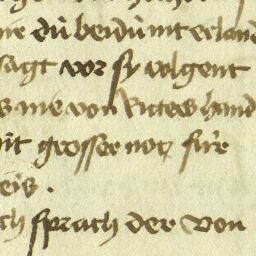 me dú beidú mt erland
sagt vor sy volgent
s nie von Ritters hand
mit grosser not für
eis .
ch sprach der von